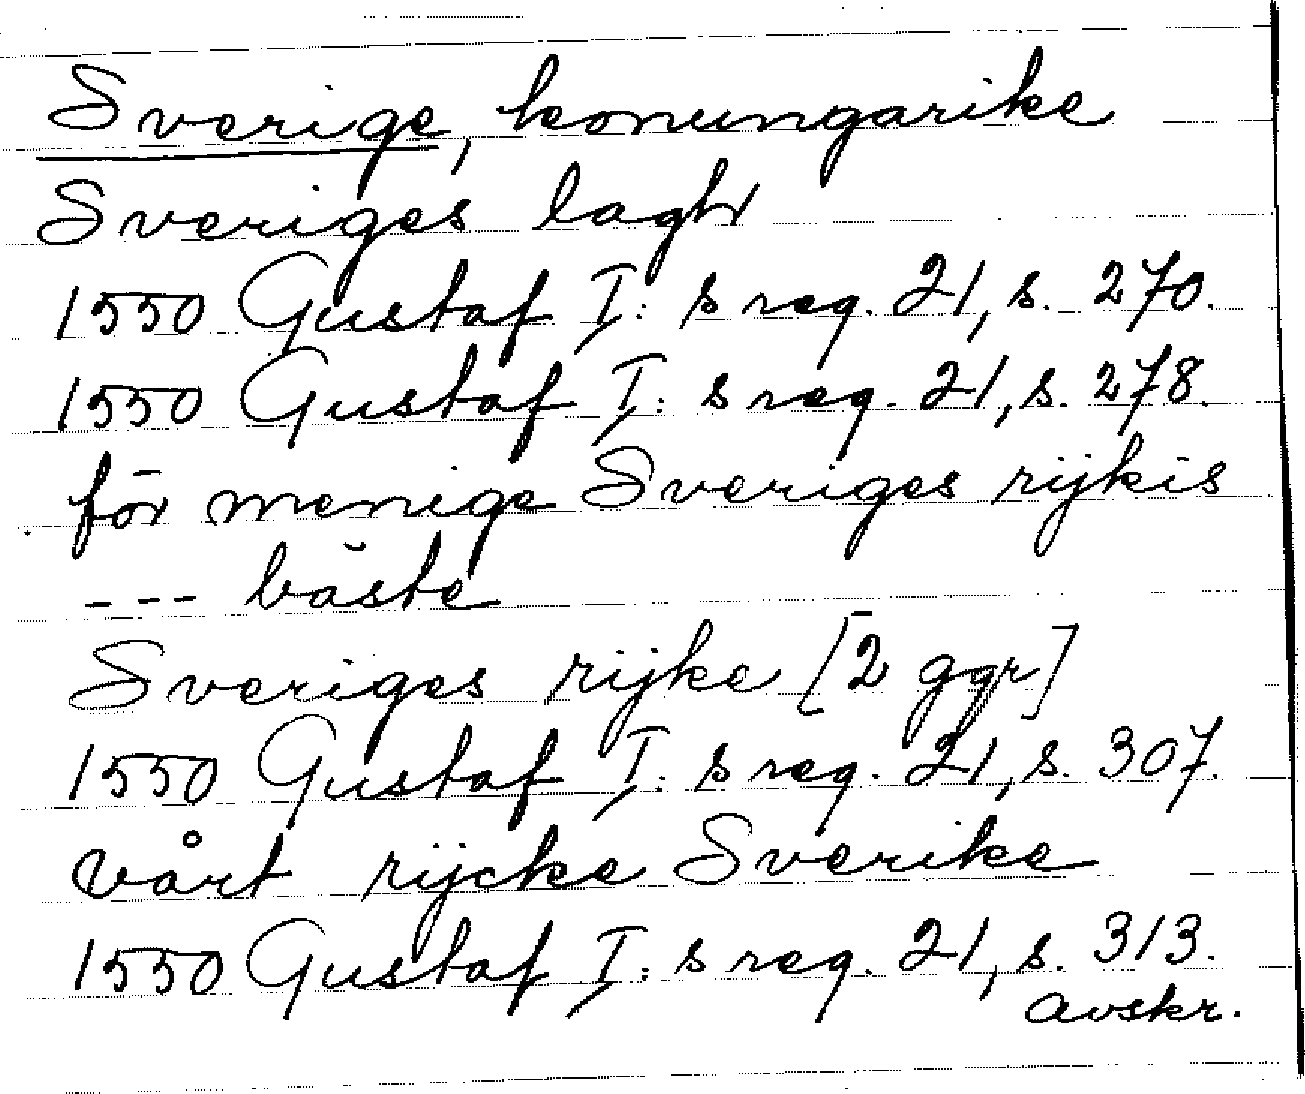 Sverige, konungarike
Sveriges lagh
1550 Gustaf I:s reg. 21, s. 270.
1550 Gustaf I:s reg. 21, s. 278.
för menige Sveriges rijkis
--- bäste
Sveriges rijke [2 ggr]
1550 Gustaf I:s reg. 21, s. 307.
vårt rijcke Sverike
1550 Gustaf I:s reg. 21, s. 313.
avskr.